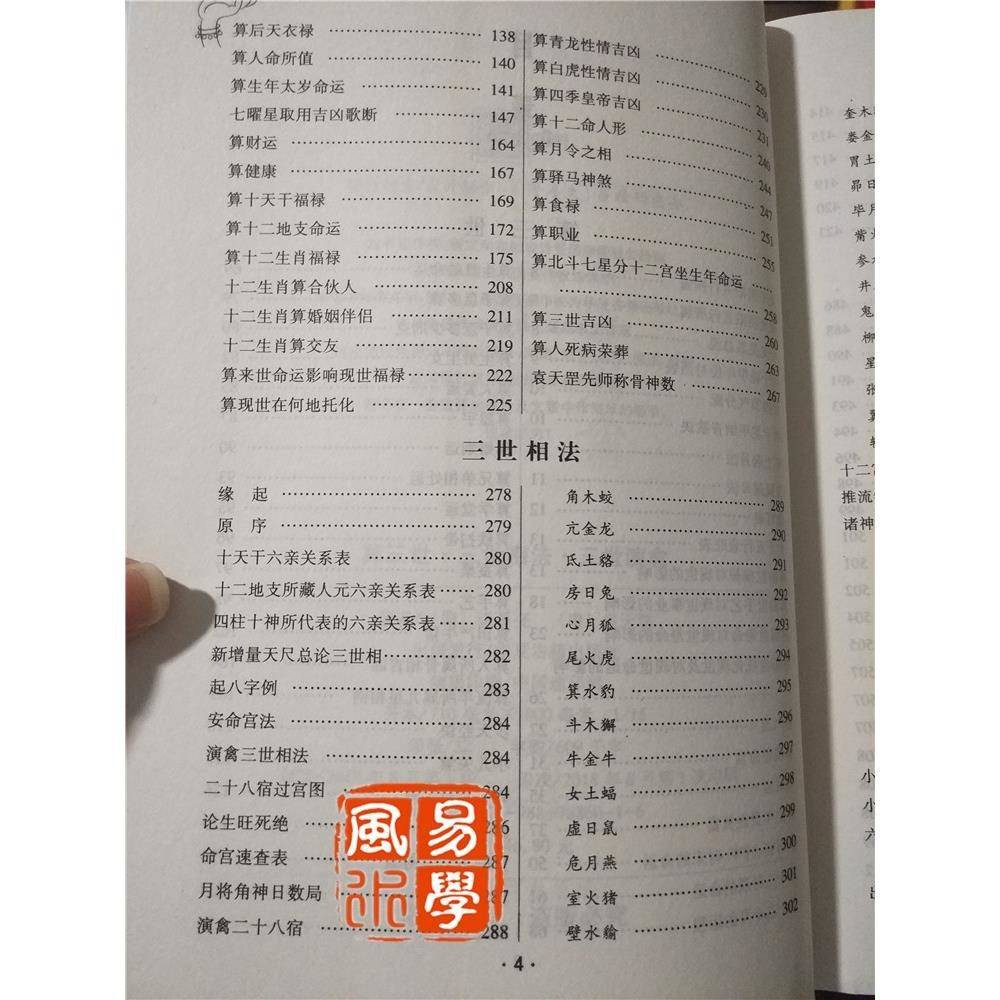 算后天衣禄 …… 138
算人命所值 …… 140
算生年太岁命运 …… 141
七曜星取用吉凶歌断 …… 147
算财运 …… 164
算健康 …… 167
算十天干福禄 …… 169
算十二地支命运 …… 172
算十二生肖福禄 …… 175
十二生肖算合伙人 …… 208
十二生肖算婚姻伴侣 …… 211
十二生肖算交友 …… 219
算来世命运影响现世福禄 …… 222
算现世在何地托化 …… 225
算青龙性情吉凶 …… 229
算白虎性情吉凶 …… 230
算四季皇帝吉凶 …… 231
算十二命人形 …… 240
算月令之相 …… 244
算驿马神煞 …… 247
算食禄 …… 251
算职业 …… 255
算北斗七星分十二宫坐生年命运
…… 258
算三世吉凶 …… 260
算人死病荣葬 …… 263
袁天罡先师称骨神数 …… 267
三世相法
缘 起 …… 278
原 序 …… 279
十天干六亲关系表 …… 280
十二地支所藏人元六亲关系表 …… 280
四柱十神所代表的六亲关系表 …… 281
新增量天尺总论三世相 …… 282
起八字例 …… 283
安命宫法 …… 284
演禽三世相法 …… 284
二十八宿过宫图 …… 284
论生旺死绝 …… 286
命宫速查表 …… 287
月将角神日数局 …… 287
演禽二十八宿 …… 288
角木蛟 …… 289
亢金龙 …… 290
氐土貉 …… 291
房日兔 …… 292
心月狐 …… 293
尾火虎 …… 294
箕水豹 …… 295
斗木獬 …… 296
牛金牛 …… 297
女土蝠 …… 298
虚日鼠 …… 299
危月燕 …… 300
室火猪 …… 301
壁水貐 …… 302
·4·
易學
風水
奎木
娄金
胃土
昴日
毕月
觜火
参
井
鬼
柳
星
张
翼
十二
推流
诸神
小
小
六